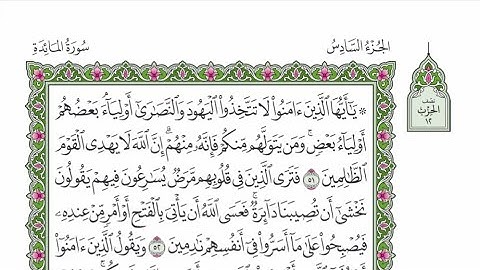 سُورَةُ المَائِدَةِ
الجُزْءُ السَّادِسُ
نِصْف
الحِزْب
١٢
۞ يَٰٓأَيُّهَا ٱلَّذِينَ ءَامَنُواْ لَا تَتَّخِذُواْ ٱلۡيَهُودَ وَٱلنَّصَٰرَىٰٓ أَوۡلِيَآءَۘ بَعۡضُهُمۡ
أَوۡلِيَآءُ بَعۡضٖۚ وَمَن يَتَوَلَّهُم مِّنكُمۡ فَإِنَّهُۥ مِنۡهُمۡۗ إِنَّ ٱللَّهَ لَا يَهۡدِي ٱلۡقَوۡمَ
ٱلظَّٰلِمِينَ ٥١ فَتَرَى ٱلَّذِينَ فِي قُلُوبِهِم مَّرَضٞ يُسَٰرِعُونَ فِيهِمۡ يَقُولُونَ
نَخۡشَىٰٓ أَن تُصِيبَنَا دَآئِرَةٞۚ فَعَسَى ٱللَّهُ أَن يَأۡتِيَ بِٱلۡفَتۡحِ أَوۡ أَمۡرٖ مِّنۡ عِندِهِۦ
فَيُصۡبِحُواْ عَلَىٰ مَآ أَسَرُّواْ فِيٓ أَنفُسِهِمۡ نَٰدِمِينَ ٥٢ وَيَقُولُ ٱلَّذِينَ ءَامَنُوٓاْ